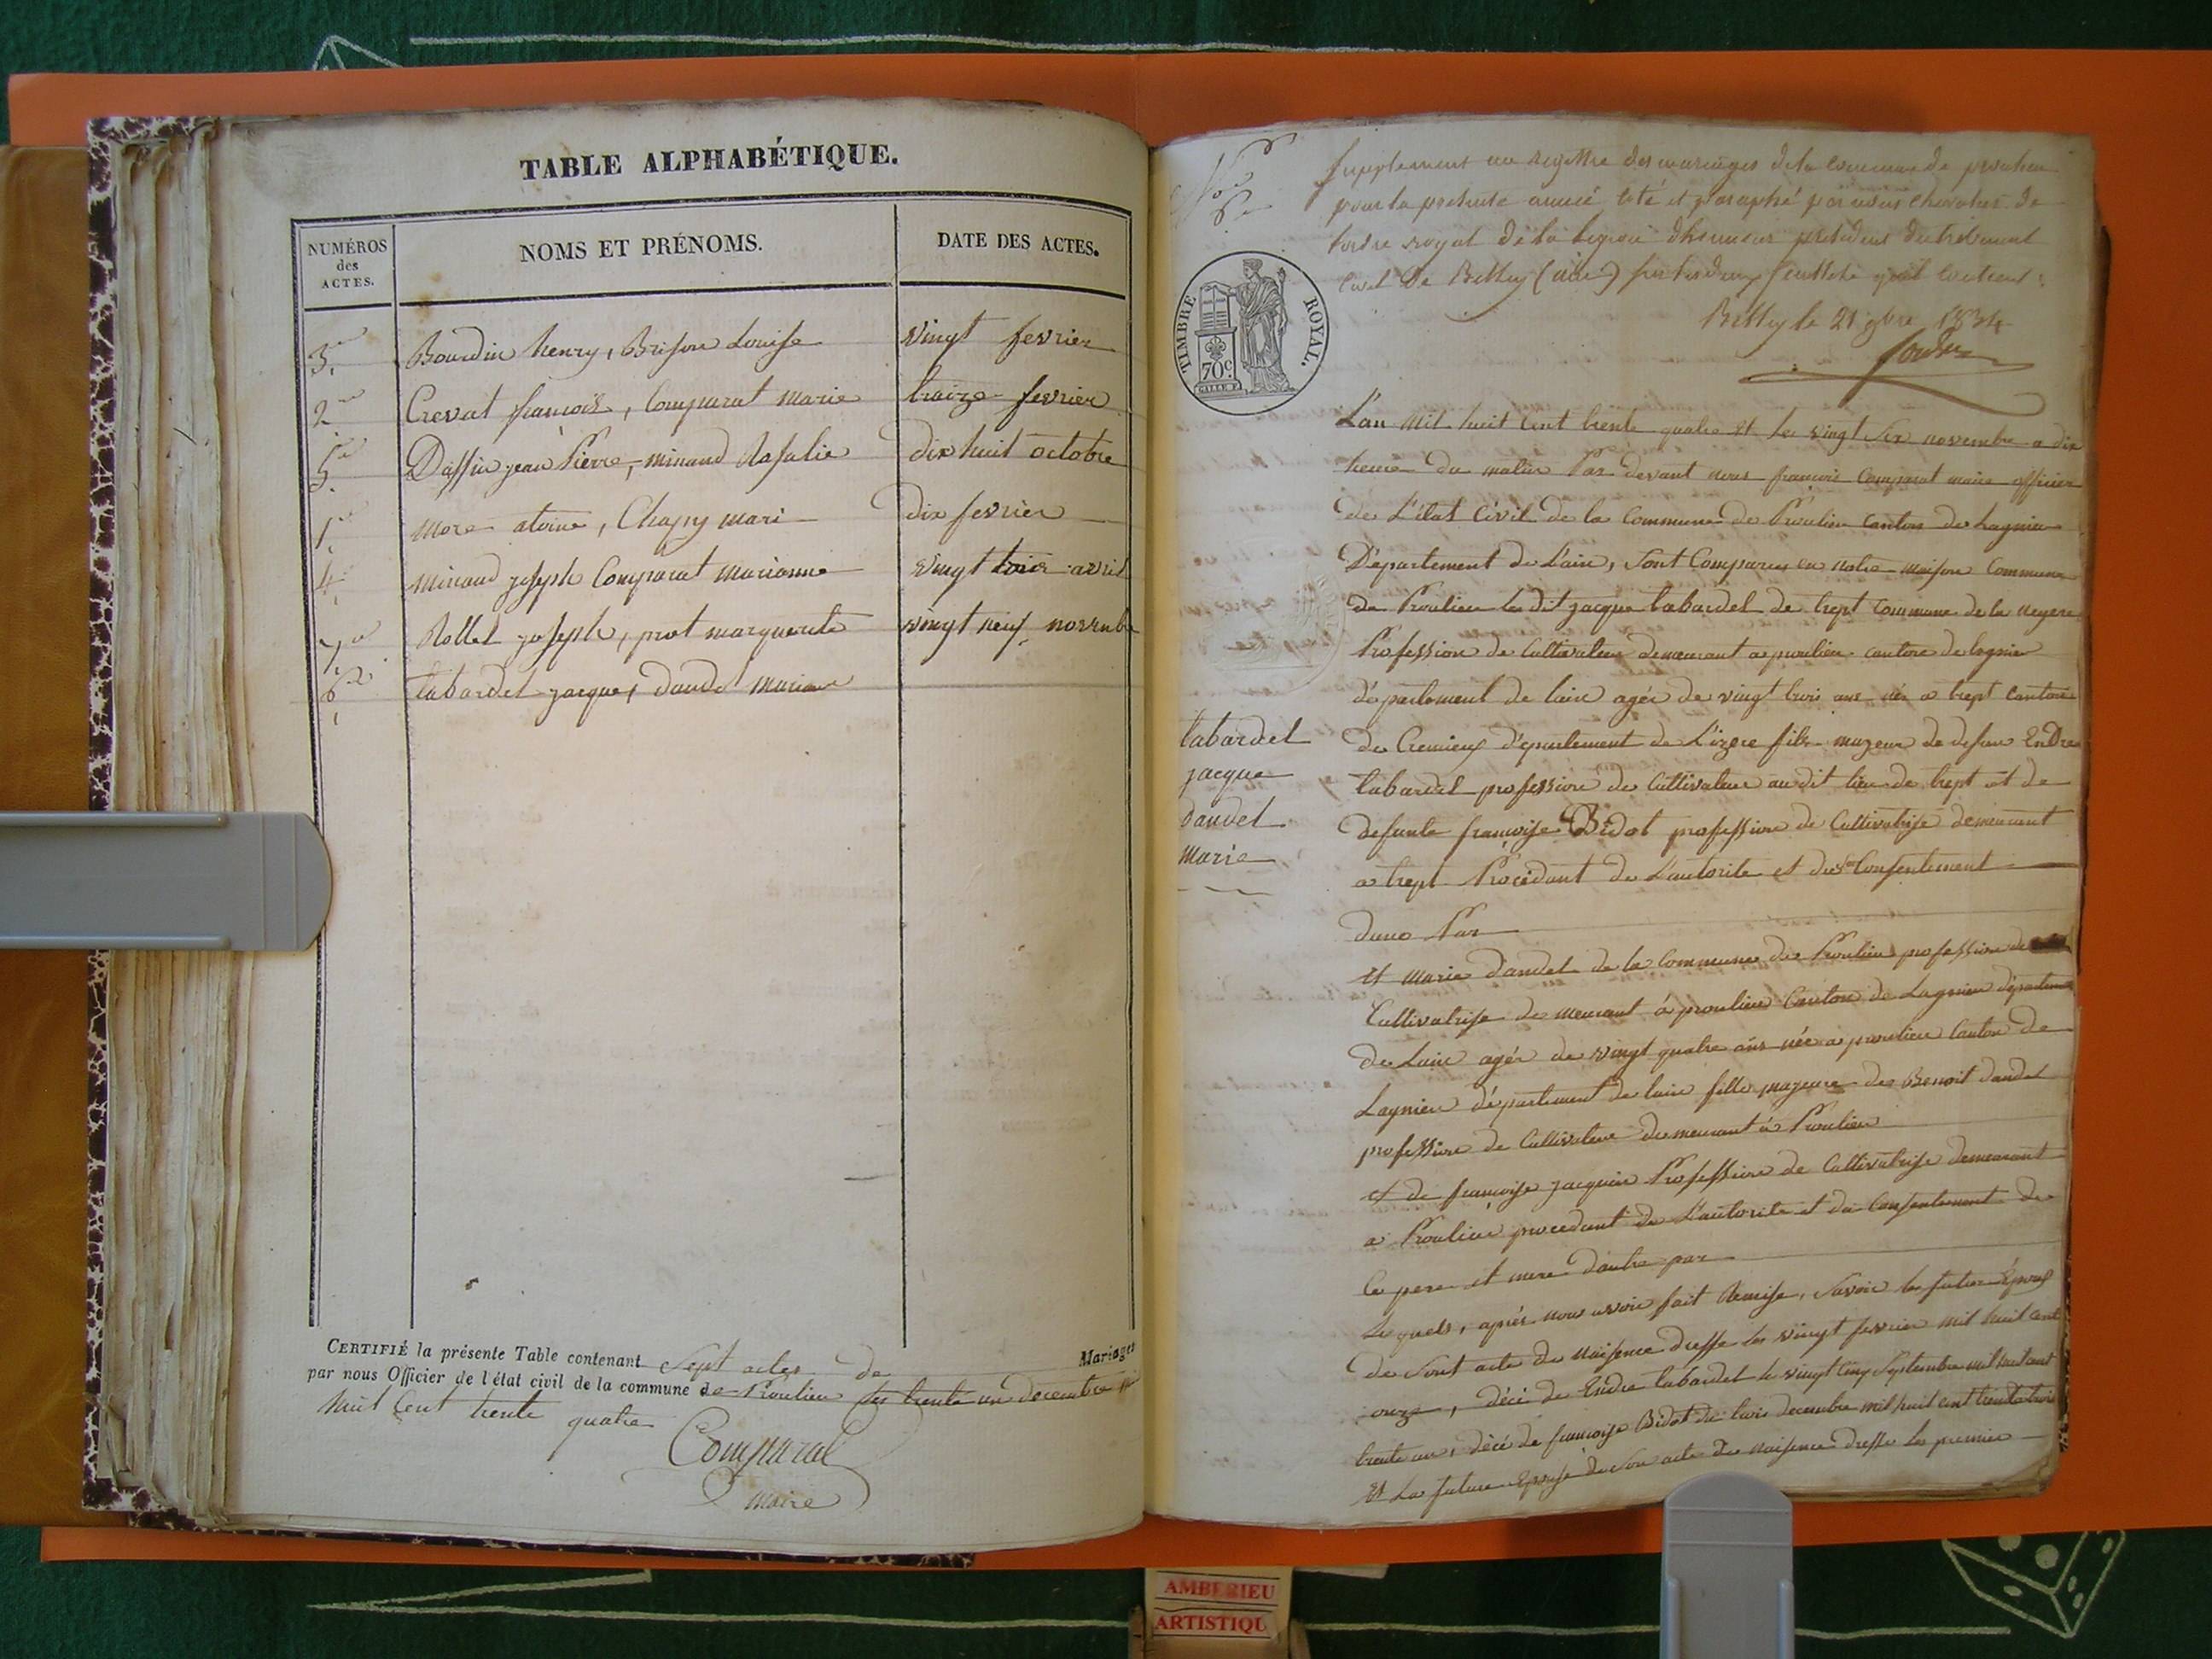 TABLE ALPHABÉTIQUE.
NUMÉROS des ACTES.
NOMS ET PRÉNOMS.
DATE DES ACTES.
3. Bourdin henry, Brison Louise vingt fevrier
2 Crevat francois, Comparat marie traize fevrier
5. Daffin jean Pierre, minaud Rosalie dix huit octobre
1. More atoine, Chapuy mari dix fevrier
4. minaud joseph Comparat marianne vingt trois avril
7. Rollet joseph, prot marguerite vingt neuf novembre
6 tabardet jacque, daudet
CERTIFIÉ la présente Table contenant Sept actes de Mariages
par nous Officier de l'état civil de la commune de Proulieu les trente un decembre mil
huit Cent trente quatre
Comparat
maire
N° 6
Supplement au registre des mariages de la commune de proulieu
pour la presente année coté et paraphé par nous chevalier de
lordre royal de la legion dhonneur president du tribunal
civil de Belley (ain) sur les deux feuillets quil contient
Belley le 21 9bre 1834
TIMBRE ROYAL.
70c.
L'an mil huit Cent trente quatre et le vingt six novembre a dix
heure du matin Par devant nous francois Comparat maire officier
de L'état Civil de la Commune de Proulieu canton de Lagnieu
Département de L'ain, sont Comparus en notre maison Commune
de Proulieu le dit jacque tabardet de trept Commune de la
Profession de Cultivateur demeurant a proulieu canton de lagnieu
département de lain agée de vingt trois ans née a trept canton
de Cremieux département de L'izere fils mageur de defun Endre
tabardet profession de Cultivateur au dit lieu de trept et de
defunte francoise Bidot profession de Cultivatrise demeurant
a trept Procédant de L'autorite et de son Consentement
dune Par
tabardet
jacque
daudet
marie
et marie daudet de la Commune de Proulieu profession de
Cultivatrise demeurant à proulieu Canton de Lagnieu département
de Lain agée de vingt quatre ans née a proulieu Canton de
Lagnieu département de lain fille mageure de Benoit daudet
profession de Cultivateur demeurant à Proulieu
et de francoise jacquin Profession de Cultivatrise demeurant
a Proulieu procedant de L'autorite et du Consentement de
Ce pere et mere dautre par
Lesquels, après nous avoir fait Remise, Savoir le futur Epoux
de sont acte de naisence dresse les vingt fevrier mil huit cent
onze, déci de Endre tabardet le vingt Cinq Septembre mil huit cent
trente un, décé de francoise Bidot du trois decembre mil huit cent trente trois
et La future Epouse de son acte de naisence dresse les premier
AMBERIEU
ARTISTIQU